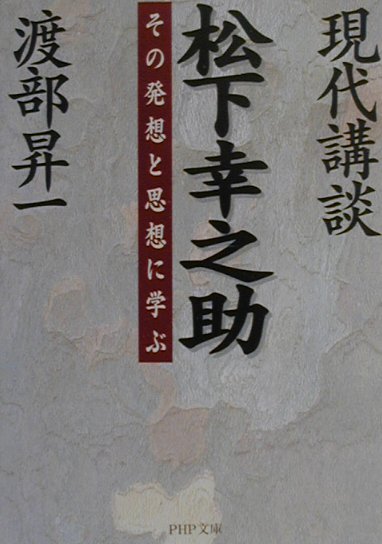 現代講談
松下幸之助
その発想と思想に学ぶ
渡部昇一
PHP文庫